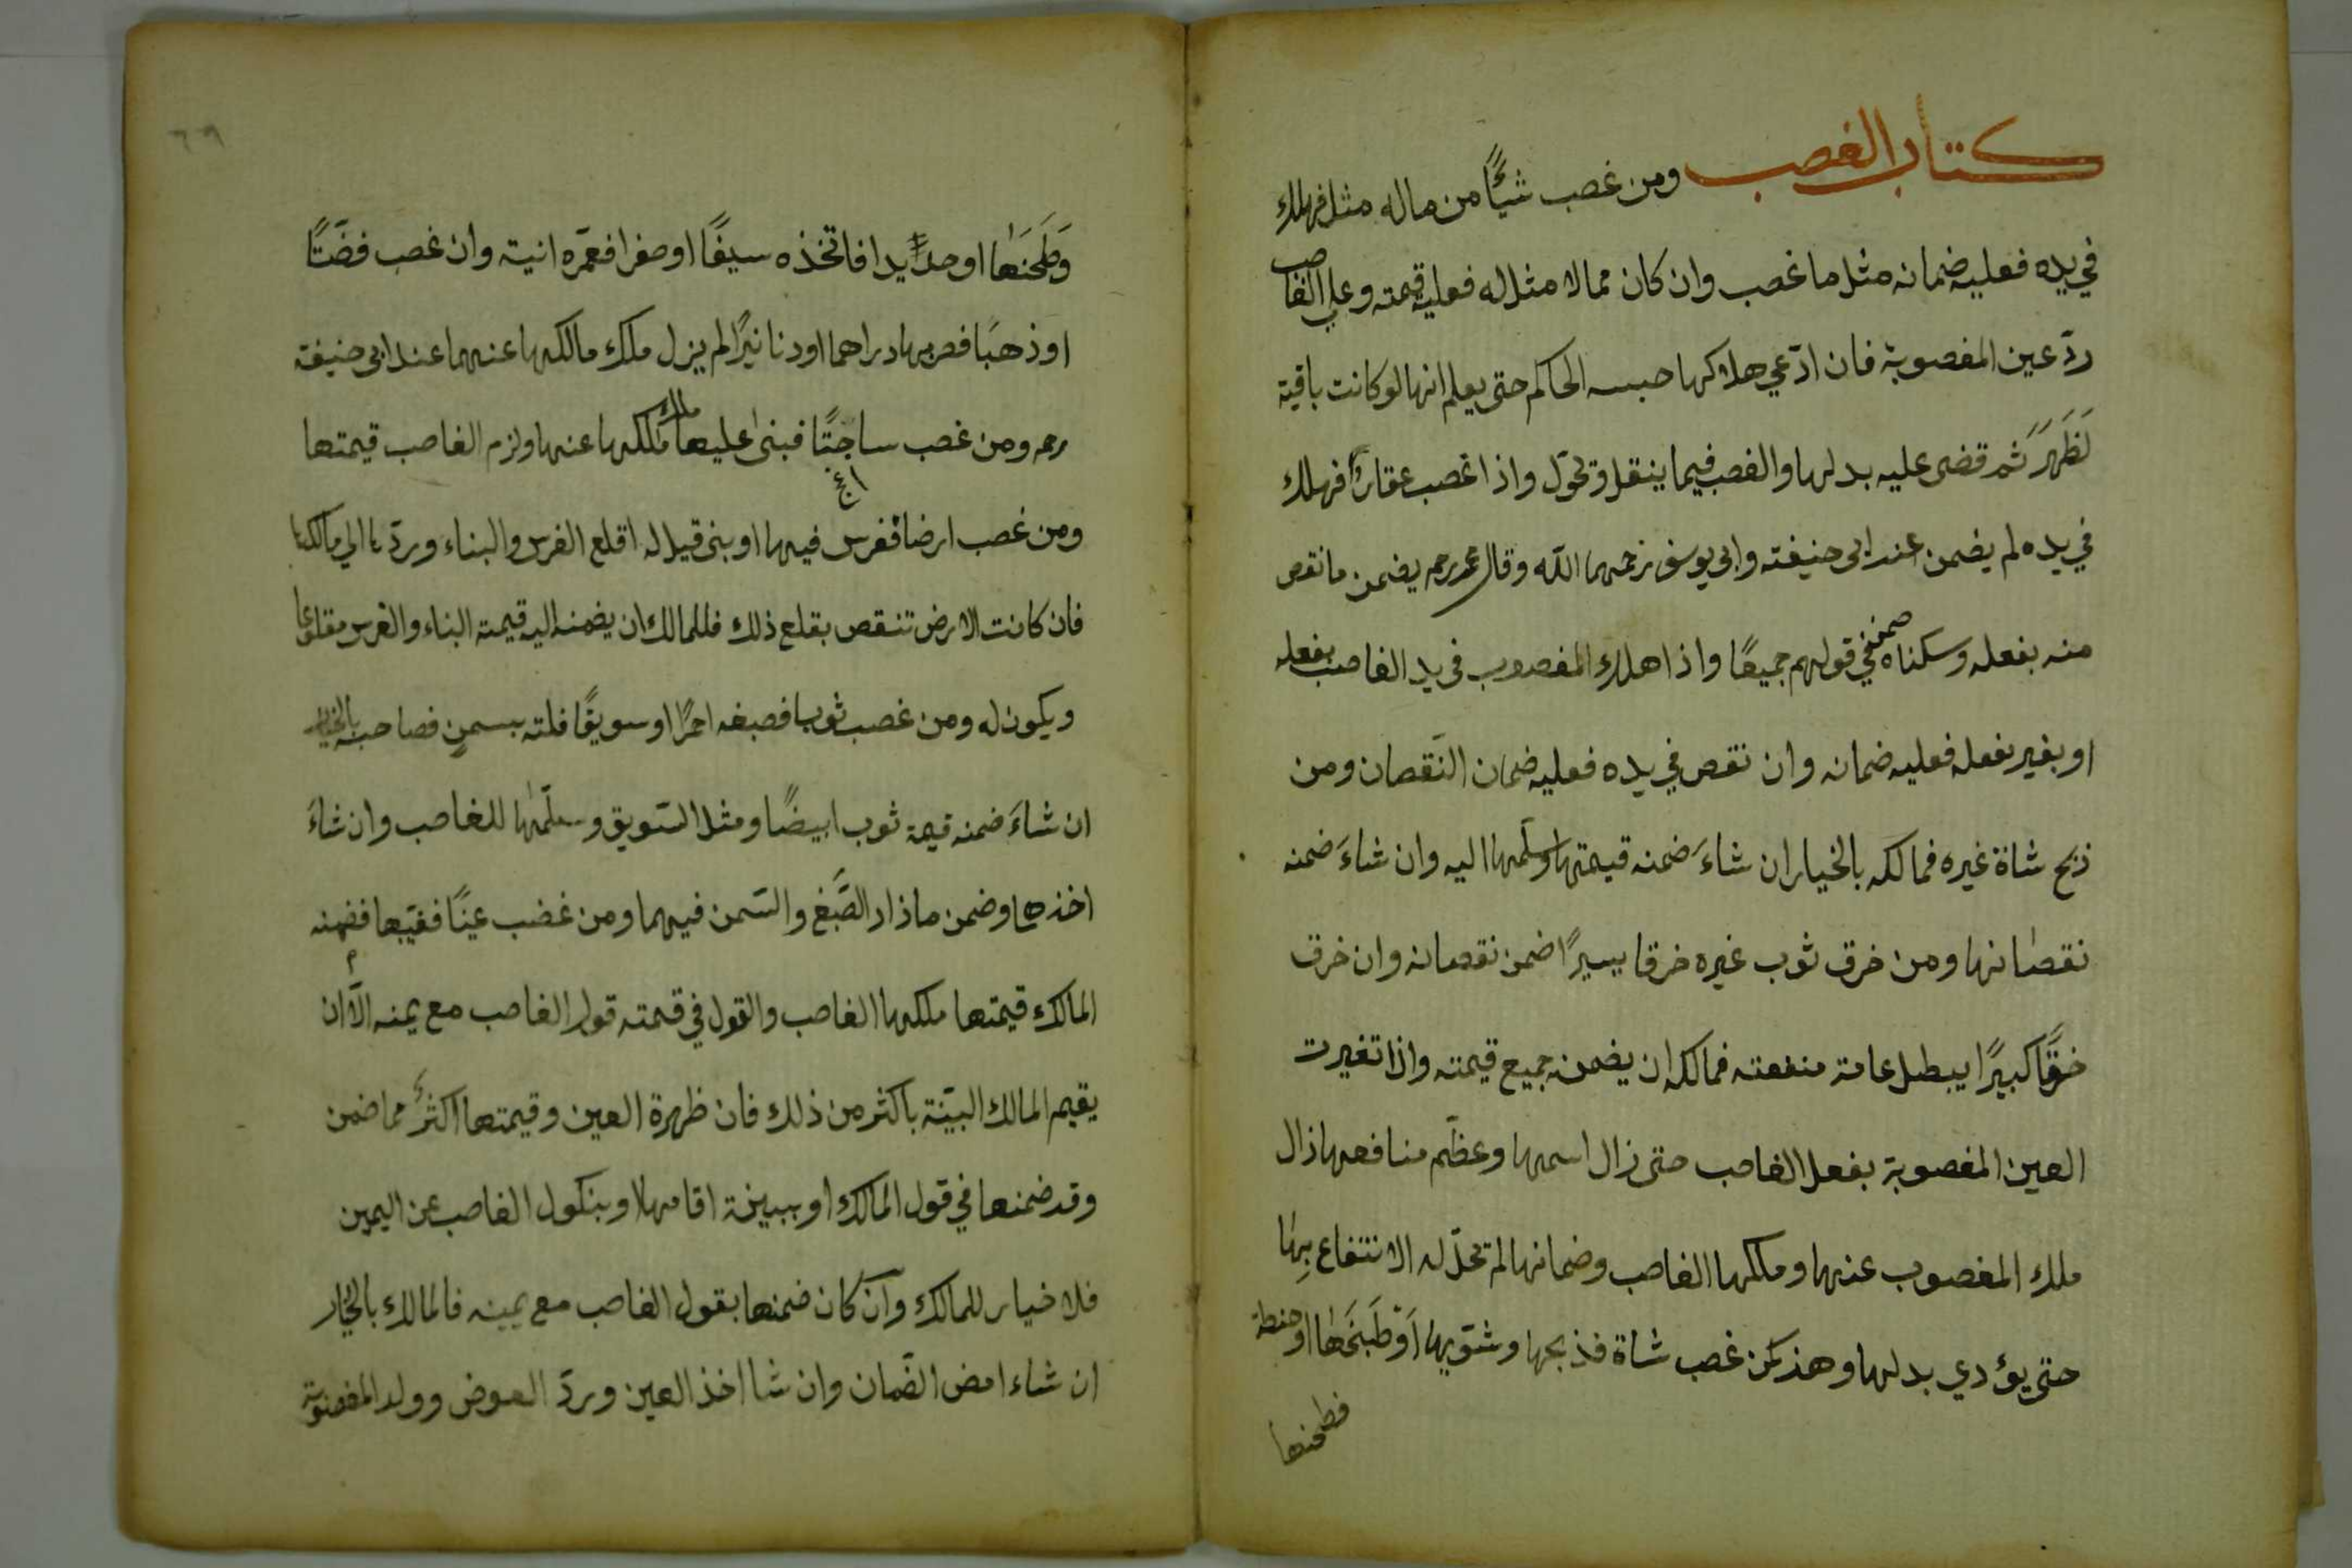 كتاب الغصب ومن غصب شئًا من ماله مثل فهلك
في يده فعليه ضمانه مثل ما غصب وان كان مما لا مثل له فعليه قيمته وعلى الغاصب
ردّ عين المغصوبة فان ادّعي هلاكها حبسه الحاكم حتى يعلم انها لو كانت باقية
لَظَهَرَ ثم قضى عليه ببدلها والغصب فيما ينقل وتحوّل واذا غصب عقارًا فهلك
في يده لم يضمن عند ابى حنيفة وابى يوسف رحمهما الله وقال محمد رحمه يضمن ما نقص
منه بفعله وسكناه ضمنه في قولهم جميعًا واذا هلك المغصوب في يد الغاصب بفعله
او بغير فعله فعليه ضمانه وان نقص في يده فعليه ضمان النّقصان ومن
ذبح شاة غيره فمالكه بالخيار ان شاءَ ضمنه قيمتها وسلّمها اليه وان شاءَ ضمنه
نقصانها ومن خرق ثوب غيره خرقا يسيرًا ضمن نقصانه وان خرق
خرقًا كبيرًا يبطل عامة منفعته فمالكه ان يضمنه جميع قيمته واذا تغيرت
العين المغصوبة بفعل الغاصب حتى زال اسمها وعظّم منافعها ذال
ملك المغصوب عنها وملكها الغاصب وضمانها لم تحلّ له الانتفاع بِها
حتى يؤدي بدلها وهذ كمن غصب شاة فذبحها وشوّيها اَوْ طَبَخَها او حنطة
فطحنها
٦٩
وَطَحَنَها او حدًيدا فاتخذه سيفًا او صفرا فعمّره انية وان غصب فضّتًا
او ذهبًا فضربها دراهما او دنانيرًا لم يزل ملك مالكها عنهما عند ابى حنيفة
رحمه ومن غصب ساجتًا فبنى عليها ملك مالكها عنها ولزم الغاصب قيمتها
ومن غصب ارضا فغرس فيها او بنى قيل له اقلع الغرس والبناء وردّها الي مالكها
فان كانت الارض تنقص بقلع ذلك فللمالك ان يضمنه اليه قيمة البناء والغرس مقلوعا
ويكون له ومن غصب ثوبا فصبغه احمرًا او سويقًا فلته بسمنٍ فصاحبه بالخيار
ان شاءَ ضمنه قيمة ثوب ابيضًا ومثل السّويق وسلّمها للغاصب وان شاءَ
اخذها وضمن ماذاد الصَّبغ والسّمن فيهما ومن غضب عينًا فغيّبها فضمنه
المالك قيمتها ملكها الغاصب والقول في قمته قول الغاصب مع يمنه الّا ان
يقيم المالك البيّنة باكثر من ذلك فان ظهرة العين وقيمتها اكثرُ مما ضمن
وقد ضمنها في قول المالك او ببينة اقامها او بنكول الغاصب عن اليمين
فلا خيار للمالك وان كان ضمنها بقول الغاصب مع يمينه فالمالك بالخيار
ان شاء امض الضّمان وان شا اخذ العين وردّ العوض وولد المغصوبة